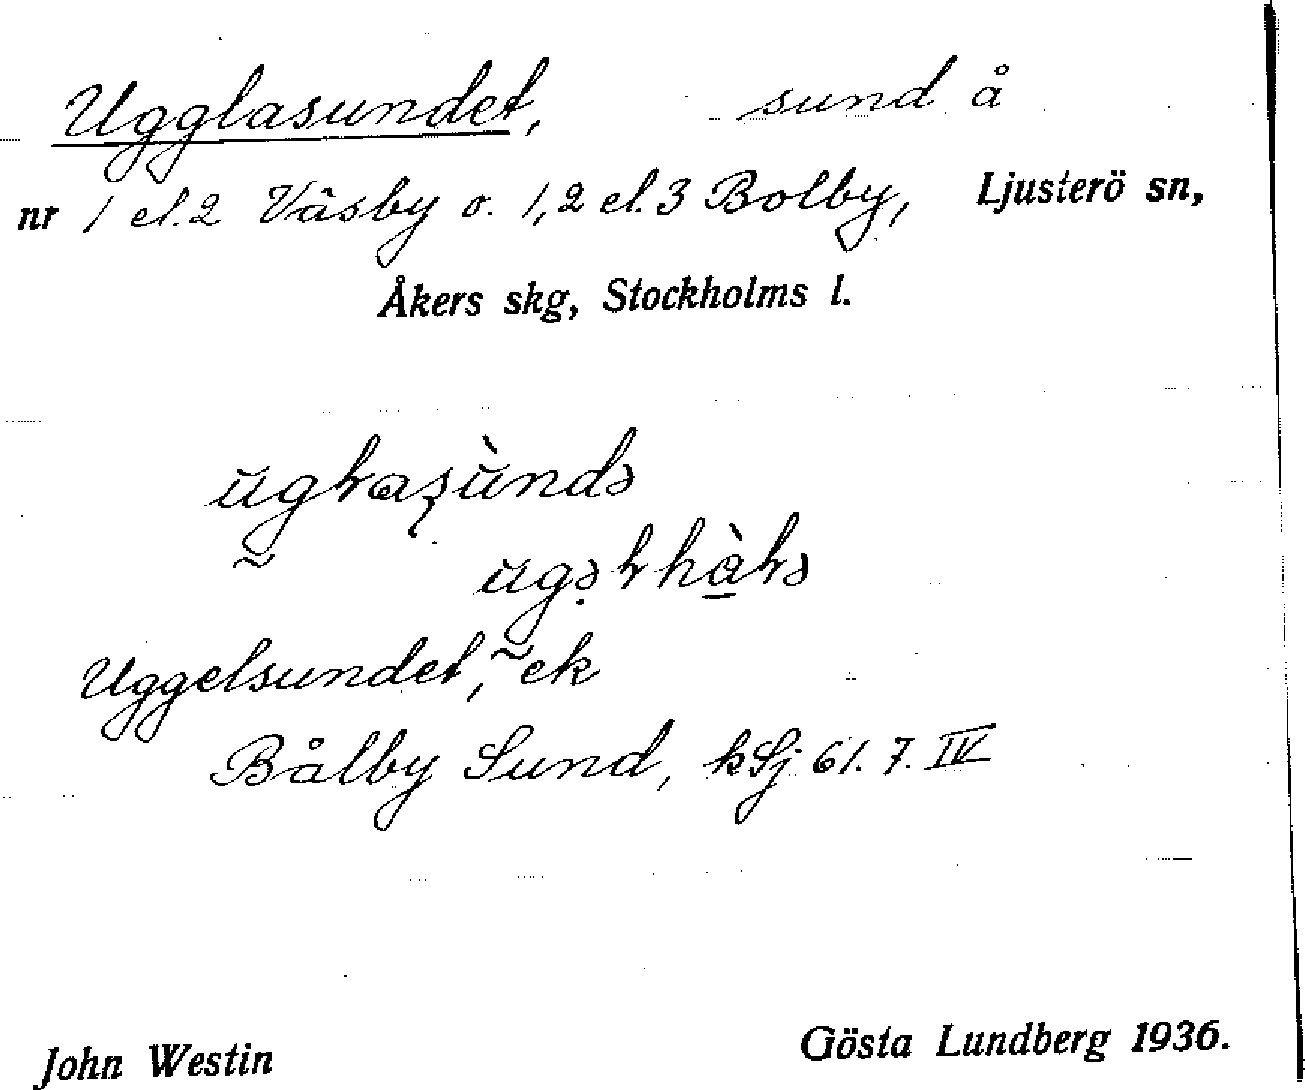 Ugglasundet, sund å
nr 1 el. 2 Väsby o. 1, 2 el. 3 Bolby, Ljusterö sn,
Åkers skg, Stockholms l.
Uggelsundet, ek
Bålby Sund, kSj 61. 7. IV
John Westin Gösta Lundberg 1936.